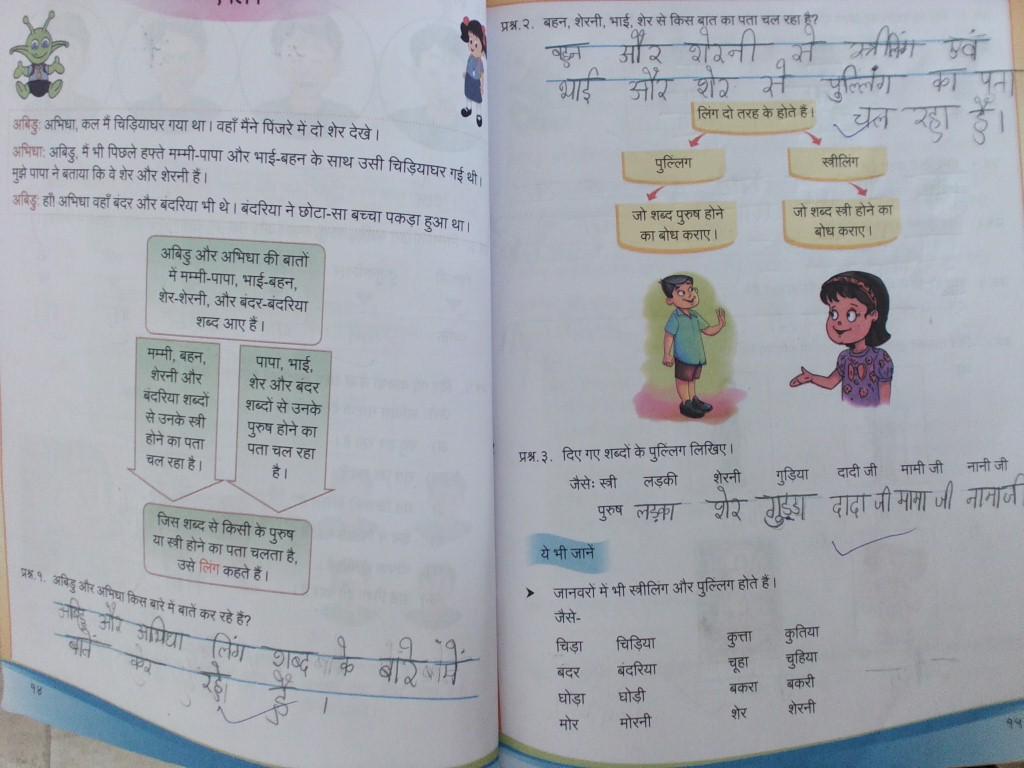 अबिडु: अभिधा, कल मैं चिड़ियाघर गया था। वहाँ मैंने पिंजरे में दो शेर देखे।
अभिधा: अबिडु, मैं भी पिछले हफ्ते मम्मी-पापा और भाई-बहन के साथ उसी चिड़ियाघर गई थी।
मुझे पापा ने बताया कि वे शेर और शेरनी हैं।
अबिडु: हाँ! अभिधा वहाँ बंदर और बंदरिया भी थे। बंदरिया ने छोटा-सा बच्चा पकड़ा हुआ था।
अबिडु और अभिधा की बातों
में मम्मी-पापा, भाई-बहन,
शेर-शेरनी, और बंदर-बंदरिया
शब्द आए हैं।
मम्मी, बहन,
शेरनी और
बंदरिया शब्दों
से उनके स्त्री
होने का पता
चल रहा है।
पापा, भाई,
शेर और बंदर
शब्दों से उनके
पुरुष होने का
पता चल रहा
है।
जिस शब्द से किसी के पुरुष
या स्त्री होने का पता चलता है,
उसे लिंग कहते हैं।
प्रश्न.१. अबिडु और अभिधा किस बारे में बातें कर रहे हैं?
अबिडु और अभिधा लिंग शब्द के बारे में
बातें कर रहे हैं।
१४
प्रश्न.२. बहन, शेरनी, भाई, शेर से किस बात का पता चल रहा है?
बहन और शेरनी से स्त्रीलिंग एवं
भाई और शेर से पुल्लिंग का पता
चल रहा है।
लिंग दो तरह के होते हैं।
पुल्लिग स्त्रीलिंग
जो शब्द पुरुष होने
का बोध कराए।
जो शब्द स्त्री होने का
बोध कराए।
प्रश्न.३. दिए गए शब्दों के पुल्लिग लिखिए।
जैसेः स्त्री लड़की शेरनी गुड़िया दादी जी मामी जी नानी जी
पुरुष लड़का शेर गुड्डा दादा जी मामा जी नाना जी
ये भी जानें
जानवरों में भी स्त्रीलिंग और पुल्लिग होते हैं।
जैसे-
चिड़ा चिड़िया कुत्ता कुतिया
बंदर बंदरिया चूहा चुहिया
घोड़ा घोड़ी बकरा बकरी
मोर मोरनी शेर शेरनी
१५